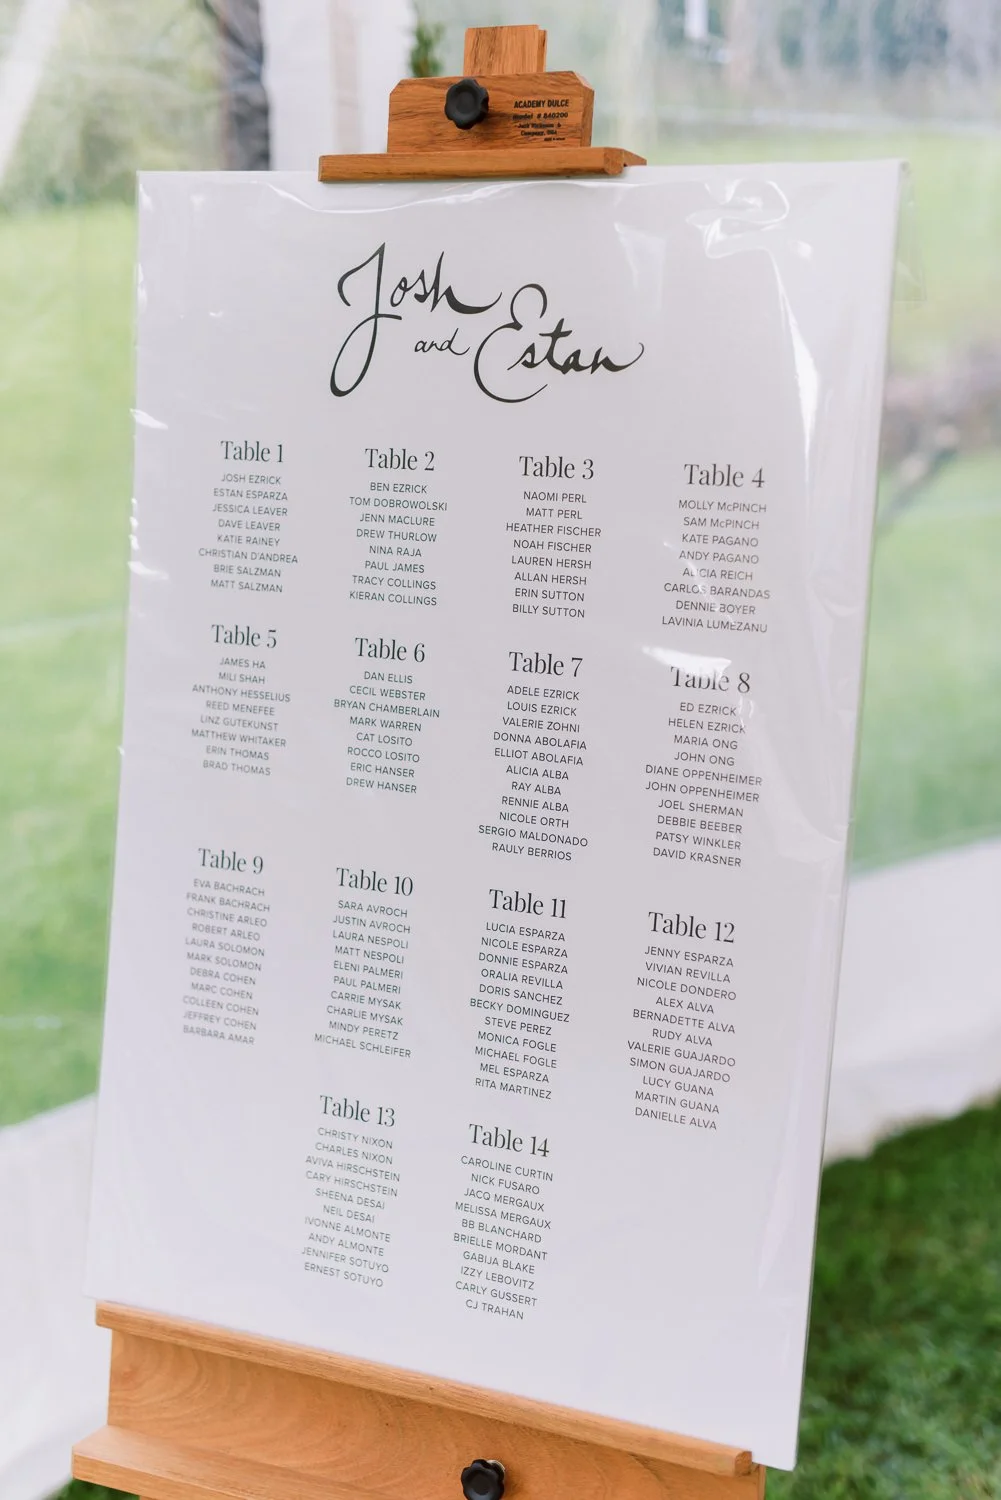 ACADEMY DULCE
Model # 840200
Company, USA
Josh
and Estan
Table 1
JOSH EZRICK
ESTAN ESPARZA
JESSICA LEAVER
DAVE LEAVER
KATIE RAINEY
CHRISTIAN D'ANDREA
BRIE SALZMAN
MATT SALZMAN
Table 2
BEN EZRICK
TOM DOBROWOLSKI
JENN MACLURE
DREW THURLOW
NINA RAJA
PAUL JAMES
TRACY COLLINGS
KIERAN COLLINGS
Table 3
NAOMI PERL
MATT PERL
HEATHER FISCHER
NOAH FISCHER
LAUREN HERSH
ALLAN HERSH
ERIN SUTTON
BILLY SUTTON
Table 4
MOLLY McPINCH
SAM McPINCH
KATE PAGANO
ANDY PAGANO
ALICIA REICH
CARLOS BARANDAS
DENNIE BOYER
LAVINIA LUMEZANU
Table 5
JAMES HA
MILI SHAH
ANTHONY HESSELIUS
REED MENEFEE
LINZ GUTEKUNST
MATTHEW WHITAKER
ERIN THOMAS
BRAD THOMAS
Table 6
DAN ELLIS
CECIL WEBSTER
BRYAN CHAMBERLAIN
MARK WARREN
CAT LOSITO
ROCCO LOSITO
ERIC HANSER
DREW HANSER
Table 7
ADELE EZRICK
LOUIS EZRICK
VALERIE ZOHNI
DONNA ABOLAFIA
ELLIOT ABOLAFIA
ALICIA ALBA
RAY ALBA
RENNIE ALBA
NICOLE ORTH
SERGIO MALDONADO
RAULY BERRIOS
Table 8
ED EZRICK
HELEN EZRICK
MARIA ONG
JOHN ONG
DIANE OPPENHEIMER
JOHN OPPENHEIMER
JOEL SHERMAN
DEBBIE BEEBER
PATSY WINKLER
DAVID KRASNER
Table 9
EVA BACHRACH
FRANK BACHRACH
CHRISTINE ARLEO
ROBERT ARLEO
LAURA SOLOMON
MARK SOLOMON
DEBRA COHEN
MARC COHEN
COLLEEN COHEN
JEFFREY COHEN
BARBARA AMAR
Table 10
SARA AVROCH
JUSTIN AVROCH
LAURA NESPOLI
MATT NESPOLI
ELENI PALMERI
PAUL PALMERI
CARRIE MYSAK
CHARLIE MYSAK
MINDY PERETZ
MICHAEL SCHLEIFER
Table 11
LUCIA ESPARZA
NICOLE ESPARZA
DONNIE ESPARZA
ORALIA REVILLA
DORIS SANCHEZ
BECKY DOMINGUEZ
STEVE PEREZ
MONICA FOGLE
MICHAEL FOGLE
MEL ESPARZA
RITA MARTINEZ
Table 12
JENNY ESPARZA
VIVIAN REVILLA
NICOLE DONDERO
ALEX ALVA
BERNADETTE ALVA
RUDY ALVA
VALERIE GUAJARDO
SIMON GUAJARDO
LUCY GUANA
MARTIN GUANA
DANIELLE ALVA
Table 13
CHRISTY NIXON
CHARLES NIXON
AVIVA HIRSCHSTEIN
CARY HIRSCHSTEIN
SHEENA DESAI
NEIL DESAI
IVONNE ALMONTE
ANDY ALMONTE
JENNIFER SOTUYO
ERNEST SOTUYO
Table 14
CAROLINE CURTIN
NICK FUSARO
JACQ MERGAUX
MELISSA MERGAUX
BB BLANCHARD
BRIELLE MORDANT
GABIJA BLAKE
IZZY LEBOVITZ
CARLY GUSSERT
CJ TRAHAN